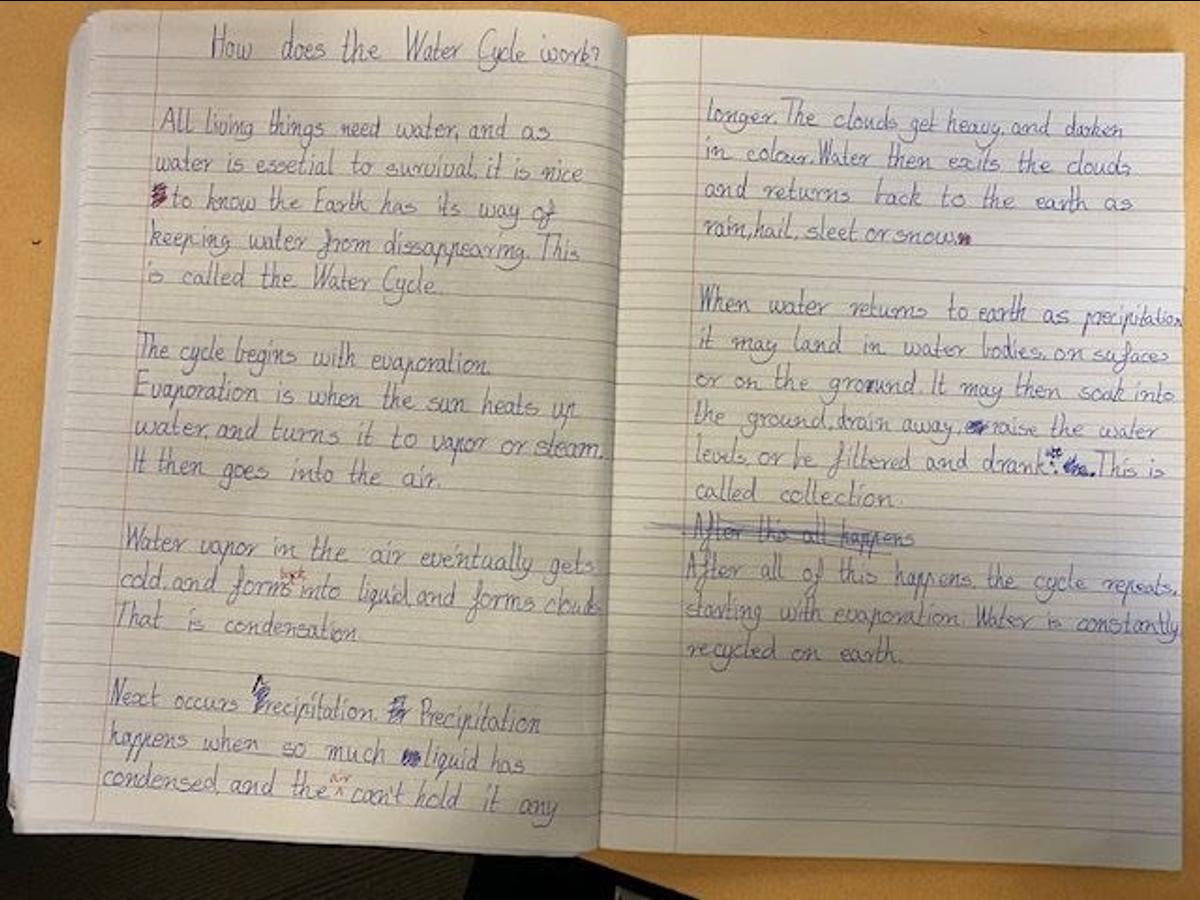 How does the Water Cycle work?
All living things need water, and as
water is essetial to survival, it is nice
to know the Earth has its way of
keeping water from dissappearing. This
is called the Water Cycle.
The cycle begins with evaporation.
Evaporation is when the sun heats up
water, and turns it to vapor or steam.
It then goes into the air.
Water vapor in the air eventually gets
cold, and forms back into liquid and forms clouds.
That is condensation.
Next occurs Precipitation. Precipitation
happens when so much liquid has
condensed, and the air can't hold it any
longer. The clouds get heavy, and darken
in colour. Water then exits the clouds
and returns back to the earth as
rain, hail, sleet or snow.
When water returns to earth as precipitation
it may land in water bodies, on sufaces
or on the ground. It may then soak into
the ground, drain away, raise the water
levels, or be filtered and drank. This is
called collection.
After this all happens
After all of this happens, the cycle repeats,
starting with evaporation. Water is constantly
recycled on earth.